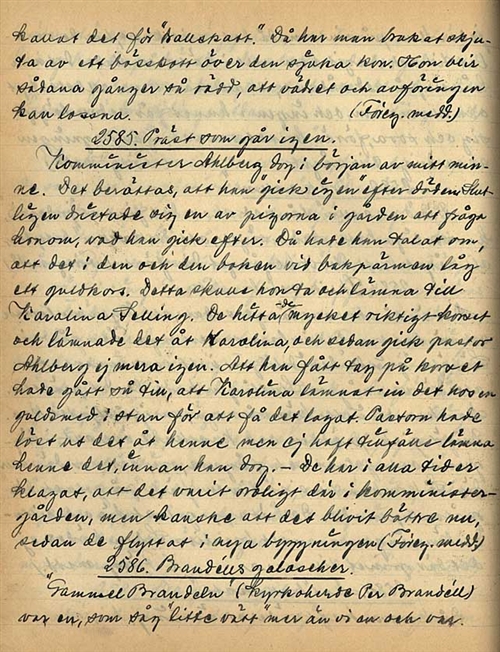 kallat det för "trallskott." Då har man brukat skju-
ta av ett bösskott över den sjuka kon. Hon blir
sådana gånger så rädd, att vädret och avföringen
kan lossna. (Föreg. medd.)
2585. Präst som går igen.
Komminister Ahlberg dog i början av mitt min-
ne. Det berättas, att han "gick igen" efter döden. Slut-
ligen dristade sig en av pigorna i gården att fråga
honom, vad han gick efter. Då hade han talat om,
att det i den och den boken vid bakpärmen låg
ett guldkors. Detta skulle hon ta och lämna till
Karolina Selling. De hittade mycket riktigt korset
och lämnade det åt Karolina, och sedan gick pastor
Ahlberg ej mera igen. Att han fått tag på korset
hade gått så till, att Karolina lämnat in det hos en
guldsmed i stan för att få det lagat. Pastorn hade
löst ut det åt henne men ej haft tillfälle lämna
henne det, innan han dog. – De har i alla tider
klagat, att det varit oroligt där i komminister-
gården, men kanske att det blivit bättre nu,
sedan de flyttat i nya byggningen (Föreg. medd.)
2586. Brandells galoscher.
"Gammel Brandeln" (kyrkoherde Per Brandell)
var en, som såg "litte vätt" mer än vi en och var.